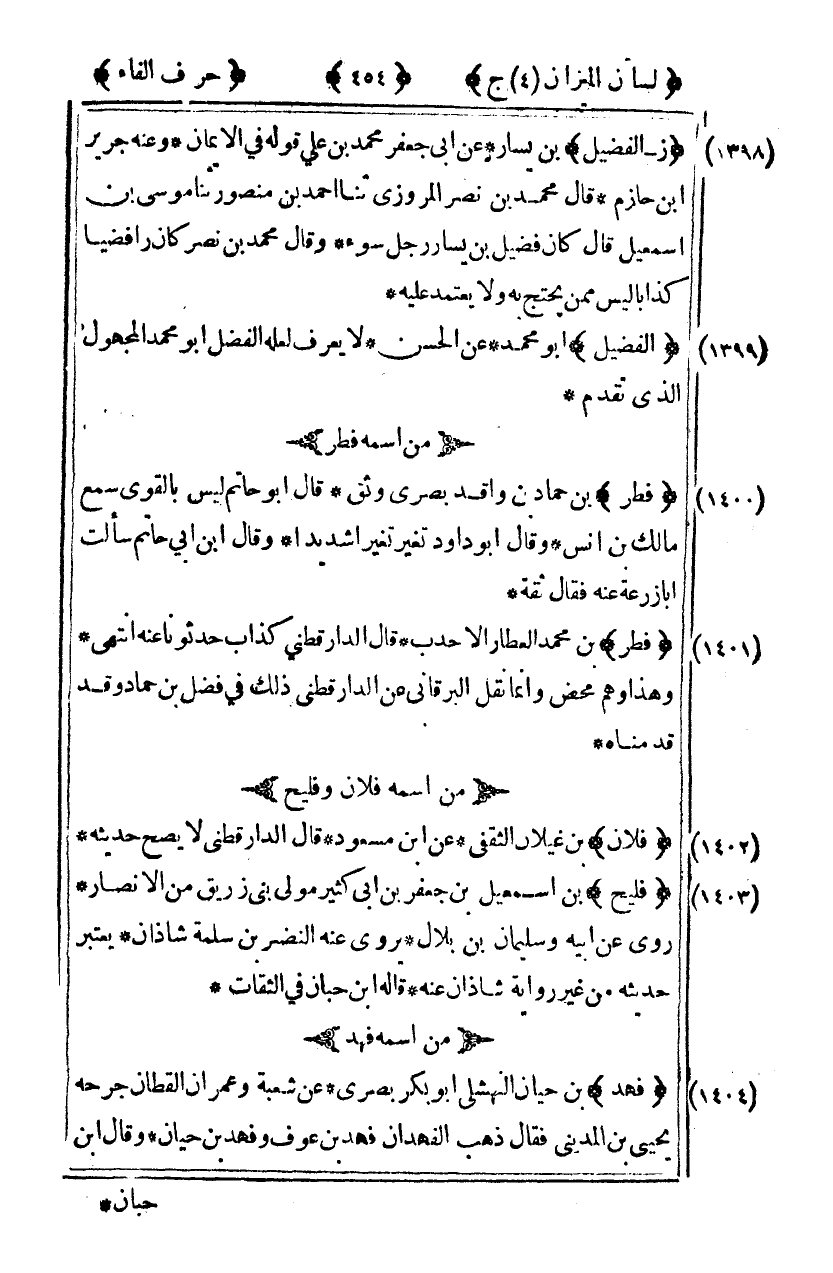 ﴿ لسان الميزان (٤) ج ﴾ ﴿ ٤٥٤ ﴾ ﴿ حرف الفاء ﴾
(١٣٩٨) ﴿ ز ـ الفضيل ﴾ بن يسار * عن ابى جعفر محمد بن علي قوله في الايمان * وعنه جرير
ابن حازم * قال محمد بن نصر المروزى ثنا احمد بن منصور ثنا موسى بن
اسمعيل قال كان فضيل بن يسار رجل سوء * وقال محمد بن نصر كان رافضيا
كذابا ليس ممن يحتج به ولا يعتمد عليه *
(١٣٩٩) ﴿ الفضيل ﴾ ابو محمد * عن الحسن * لا يعرف لعله الفضل ابو محمد المجهول
الذى تقدم *
من اسمه فطر
(١٤٠٠) ﴿ فطر ﴾ بن حماد بن واقد بصرى وثق * قال ابو حاتم ليس بالقوى سمع
مالك بن انس * وقال ابو داود تغير تغيرا شديدا * وقال ابن ابي حاتم سألت
ابا زرعة عنه فقال ثقة *
(١٤٠١) ﴿ فطر ﴾ بن محمد العطار الاحدب * قال الدارقطني كذاب حدثونا عنه انتهى *
وهذا وهم محض وانما نقل البرقانى عن الدارقطنى ذلك في فضل بن حماد وقد
قدمناه *
من اسمه فلان وفليح
(١٤٠٢) ﴿ فلان ﴾ بن غيلان الثقفى * عن ابن مسعود * قال الدارقطنى لا يصح حديثه *
(١٤٠٣) ﴿ فليح ﴾ بن اسمعيل بن جعفر بن ابى كثير مولى بنى زريق من الانصار *
روى عن ابيه وسليمان بن بلال * يروى عنه النضر بن سلمة شاذان * يعتبر
حديثه من غير رواية شاذان عنه * قاله ابن حبان في الثقات *
من اسمه فهد
(١٤٠٤) ﴿ فهد ﴾ بن حيان النهشلى ابو بكر بصرى * عن شعبة وعمران القطان جرحه
يحيى بن المدينى فقال ذهب الفهدان فهد بن عوف وفهد بن حيان * وقال ابن
حبان *